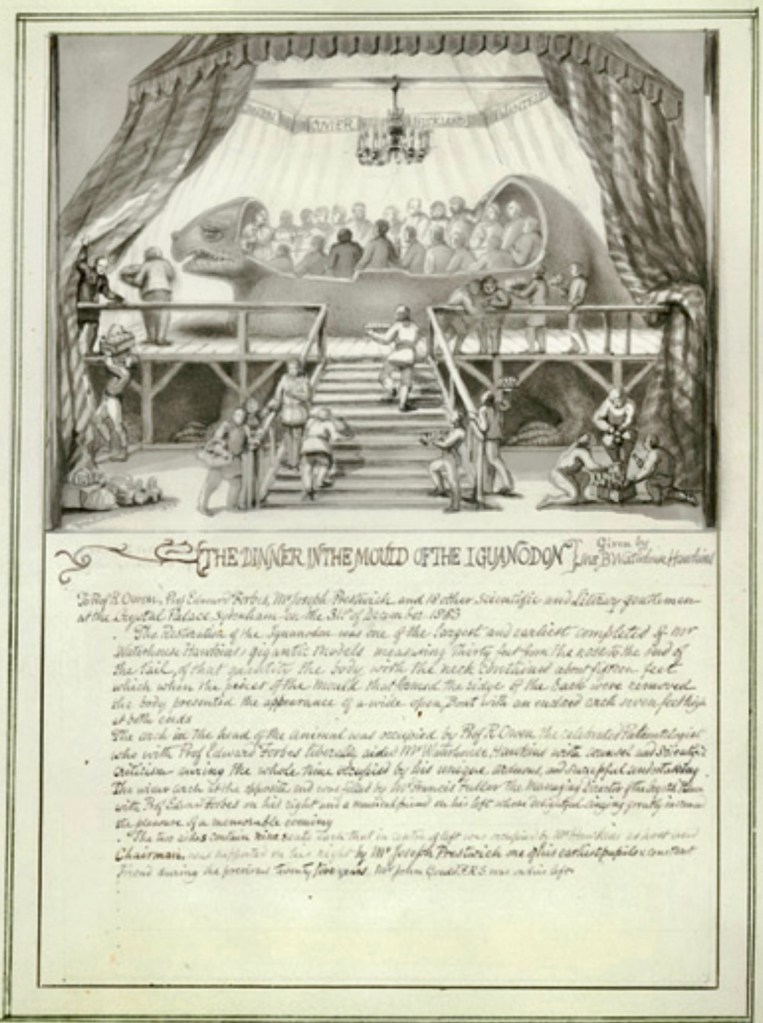 CUVIER BUCKLAND MANTELL
THE DINNER IN THE MOULD OF THE IGUANODON Given by
B Waterhouse Hawkins
To Prof R. Owen, Prof Edward Forbes, Mr Joseph Prestwich and 18 other scientific and literary gentlemen
at the Crystal Palace Sydenham on the 31st of December 1853
The Restoration of the Iguanodon was one of the largest and earliest completed of Mr
Waterhouse Hawkins' gigantic models measuring thirty feet from the nose to the end of
the tail, of that quantity the body with the neck contained about fifteen feet
which when the pieces of the mould that formed the ridge of the back were removed
the body presented the appearance of a wide open with an arch seven feet high
at both ends
The arch in the head of the animal was occupied by Prof R. Owen the celebrated Paleontologist
who with Prof Edward Forbes liberally aided Mr Waterhouse Hawkins with counsel and scientific
criticism during the whole time occupied by his unique, arduous, and successful undertaking
The wider arch at the opposite end was filled by Mr Francis Fuller the Managing Director of the Crystal Palace
with Prof Edward Forbes on his right and a musical friend on his left whose delightful singing greatly increased
the pleasure of a memorable evening
The two sides contain nine seats each that in centre of left was occupied by Mr Hawkins as host and
Chairman, was supported on his right by Mr Joseph Prestwich one of his earliest pupils & constant
friend during the previous twenty five years. Mr John Gould F.R.S was on his left